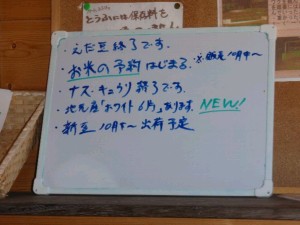 とうふには保存料を
・えだ豆 終了です.
・お米の予約 はじまる. ※販売10月中〜
・ナス・キュウリ 終了です.
・地元産「ホワイト6片」あります. NEW!
・新豆 10月下〜 出荷予定